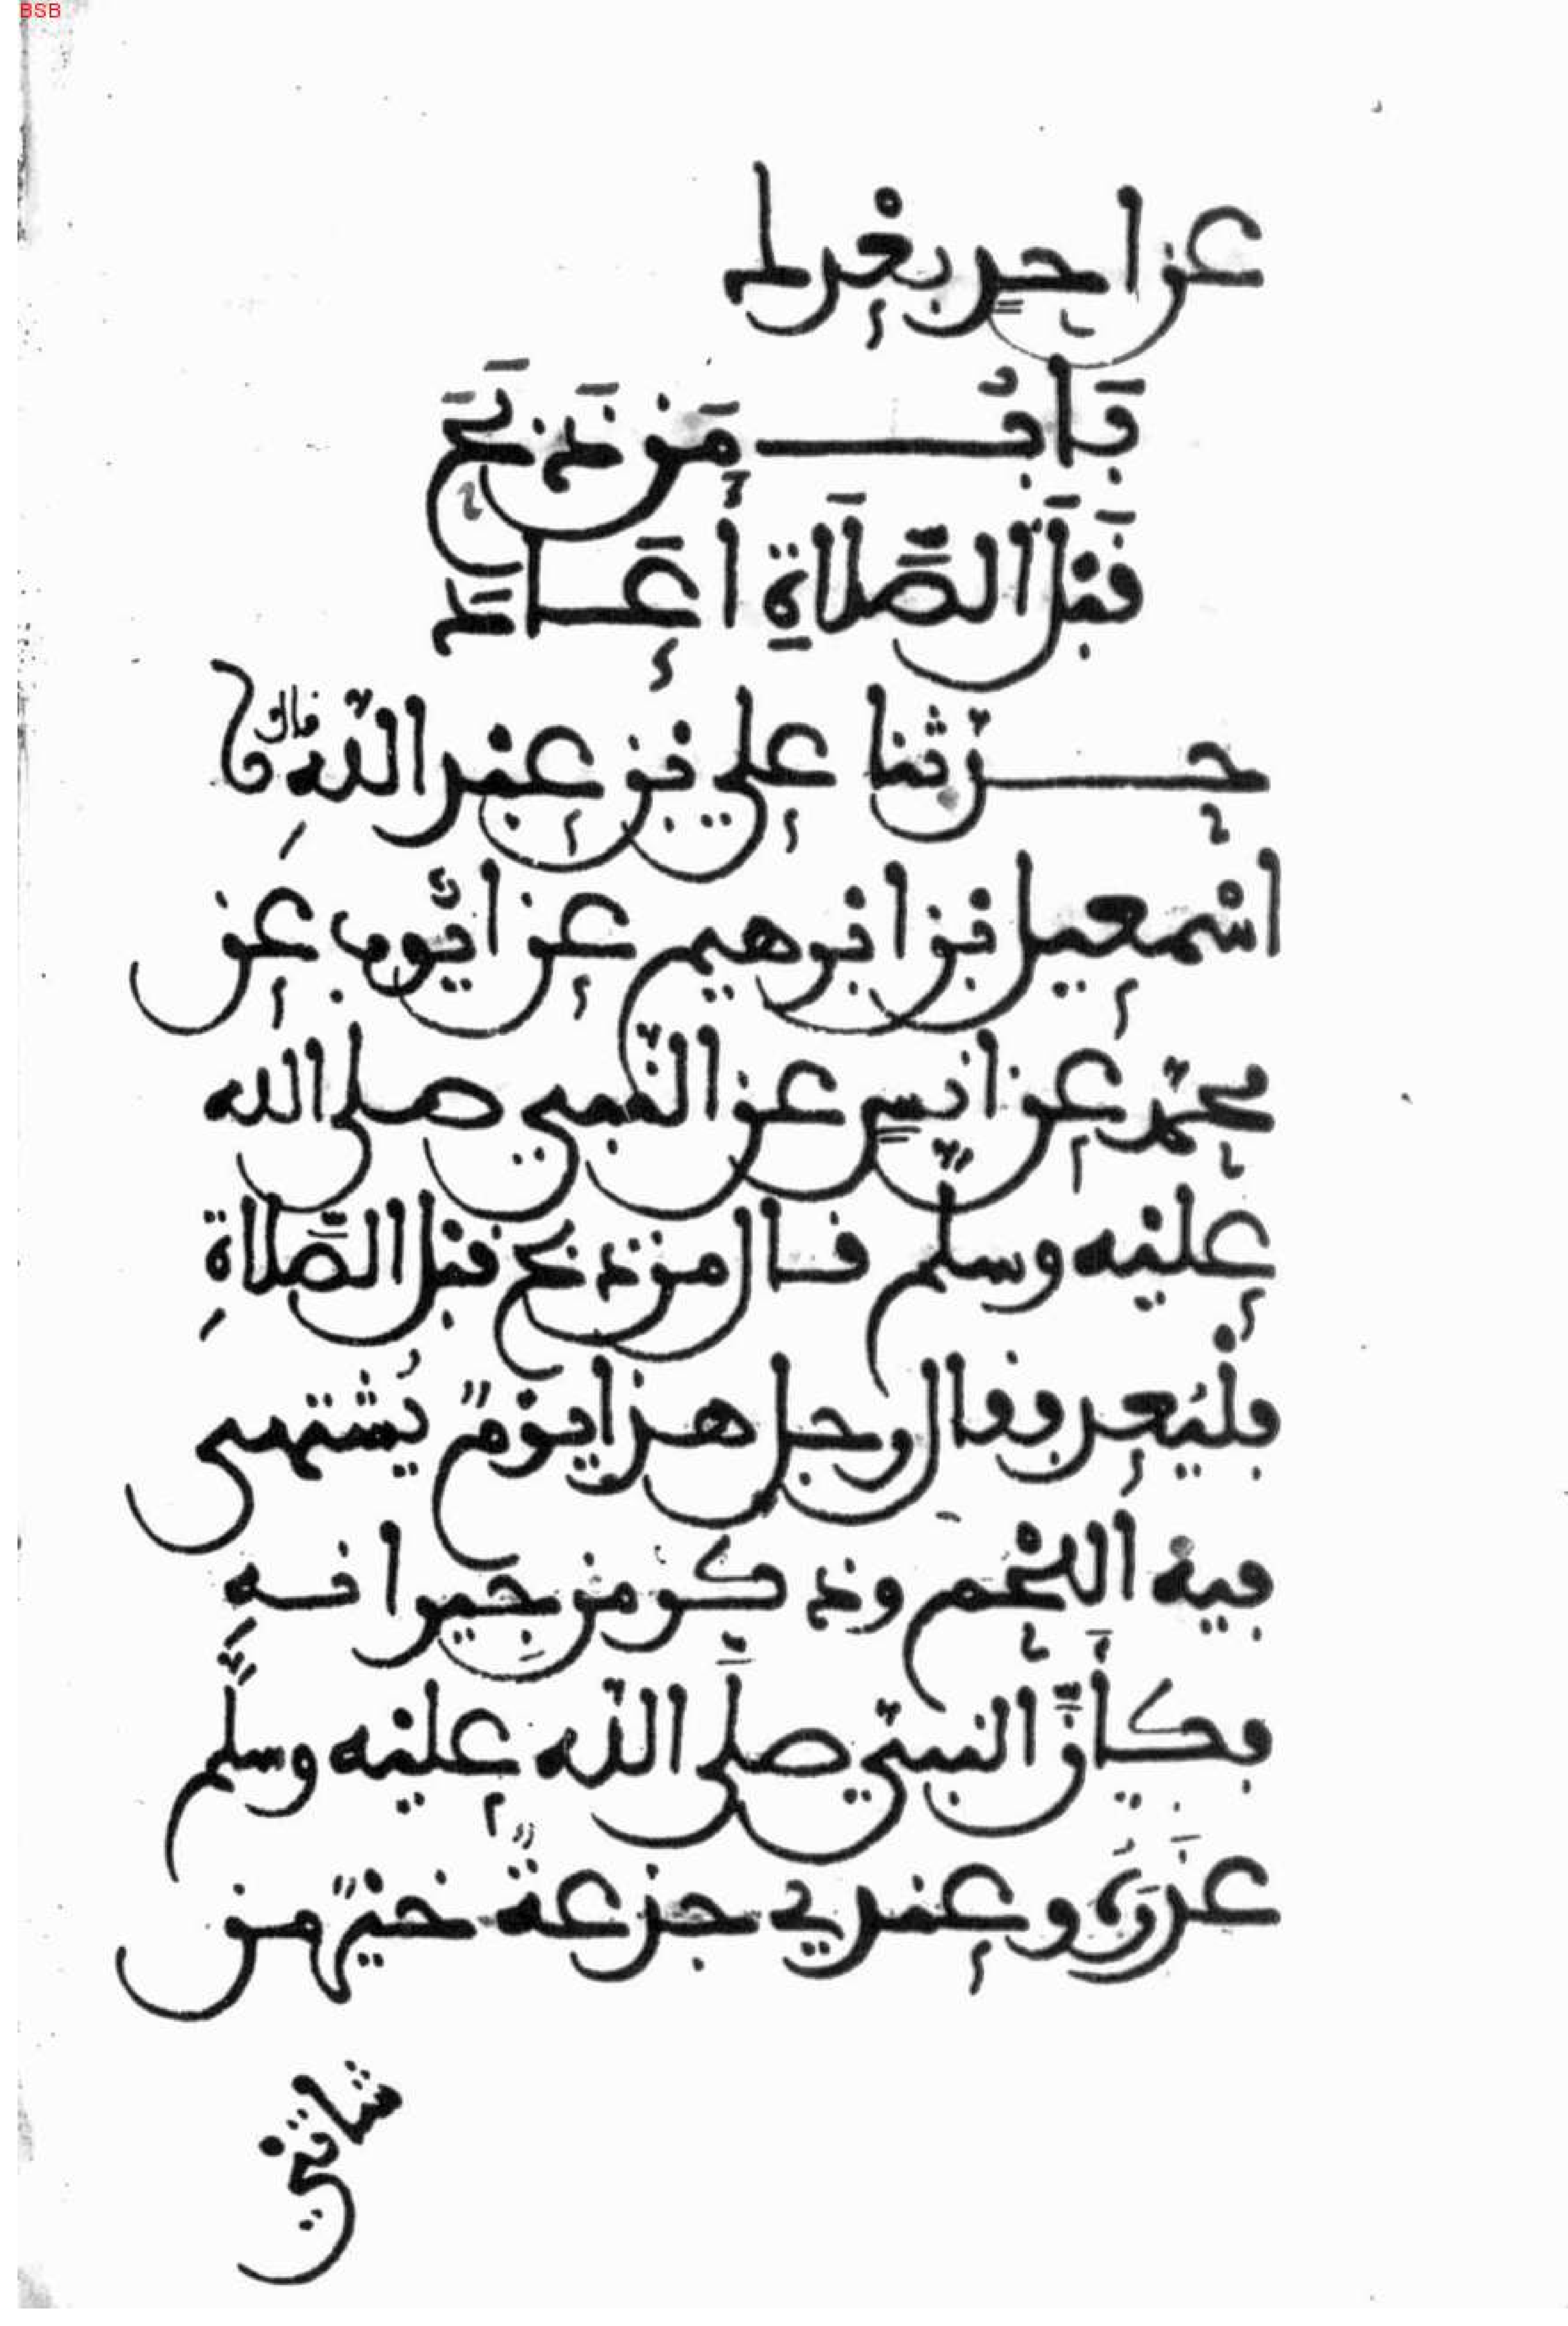 BSB
عن احدٍ بعْدك
بَابُ مَن ذَبَحَ
قَبْلَ الصَّلَاةِ أَعَادَ
حدّثنا علي بن عبد اللّه قال نا
اسْمعيل بن ابرهيم عن ايّوب عن
محمّد عن انسٍ عن النّبي صلى الله
عليْه وسلّم قال من ذبح قبل الصّلاةِ
فلْيُعد فقال رجل هذا يوْمٌ يُشْتهى
فيه اللّحْم وذكر من جِيرانهِ
فكأَنَّ النبيّ صلَّى اللّه عليْه وسلَّم
عذَرَهُ وعندي جذعةٌ خيْرٌ من
شاتَيْ